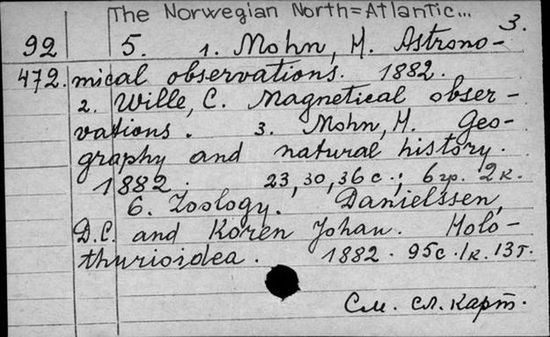 The Norwegian North=Atlantic...
3.
92 5. 1. Mohn, H. Astrono-
472. mical observations. 1882.
2. Wille, C. Magnetical obser-
vations. 3. Mohn, H. Geo-
graphy and natural history.
1882. 23, 30, 36 с.; 6 гр. 2 к.
6. Zoology. Danielssen,
D.C. and Koren Johan. Holo-
thurioidea. 1882. 95 с. 1 к. 13 т.
См. сл. карт.